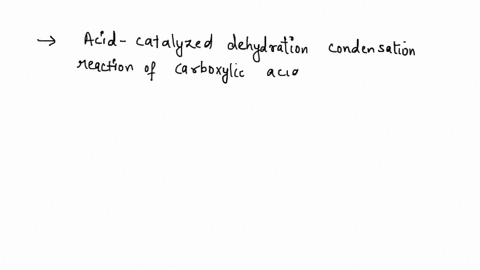 → Acid-catalyzed dehydration condensation
reaction of carboxylic acid